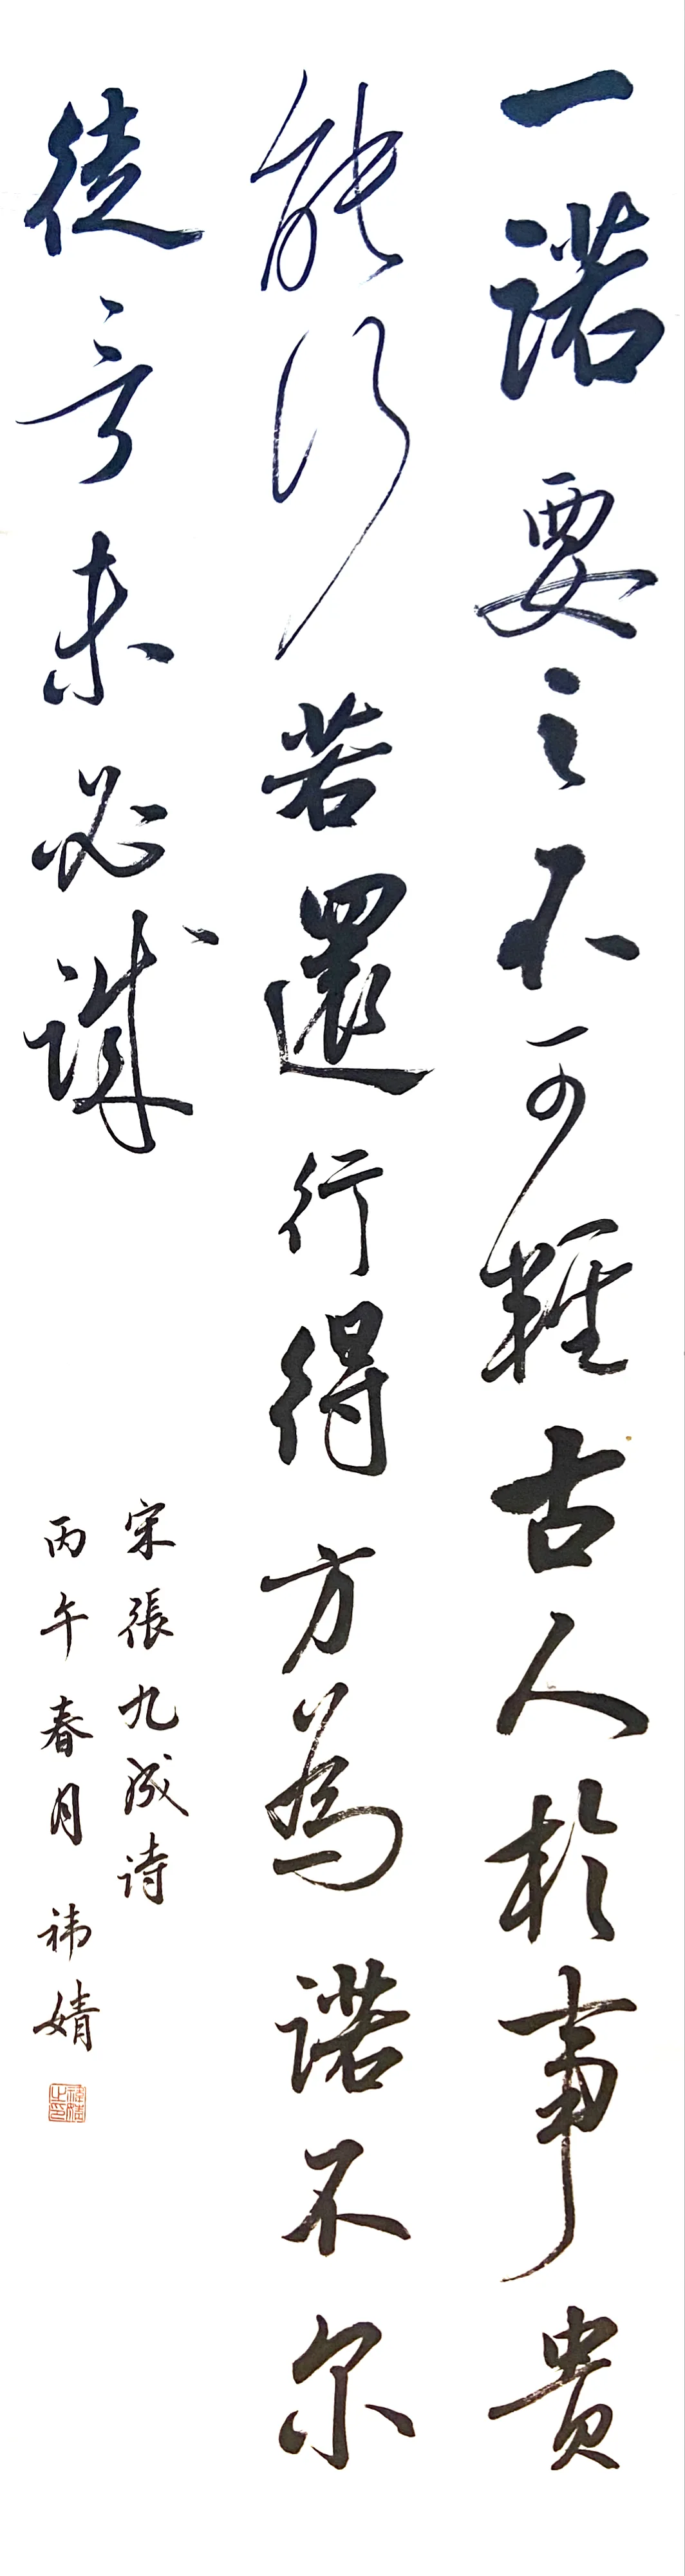 一諾要之不可輕古人於事貴
能行若還行得方為諾不尔
徒言未必誠
宋張九成诗
丙午春月 祎婧
祎婧之印